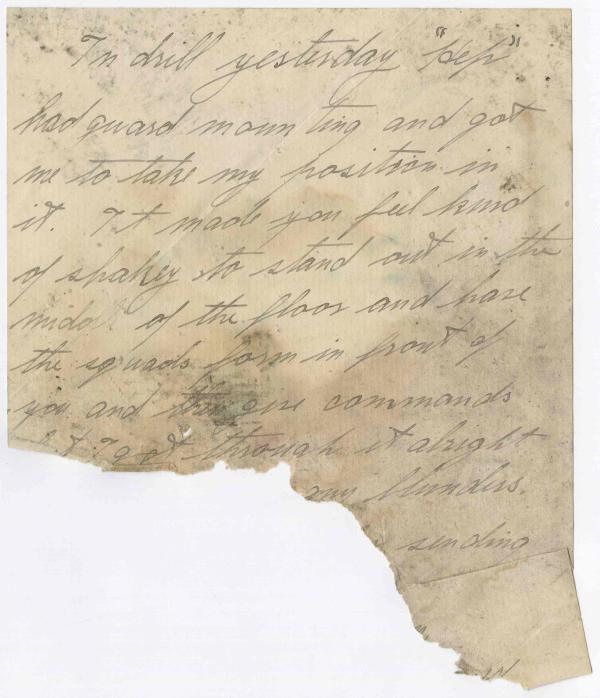 In drill yesterday "Pep"
had guard mounting and got
me to take my position in
it. It made you feel kind
of shakey to stand out in the
middl of the floor and have
the squads form in front of
you and then give commands
I got through it alright
any blunders.
sending